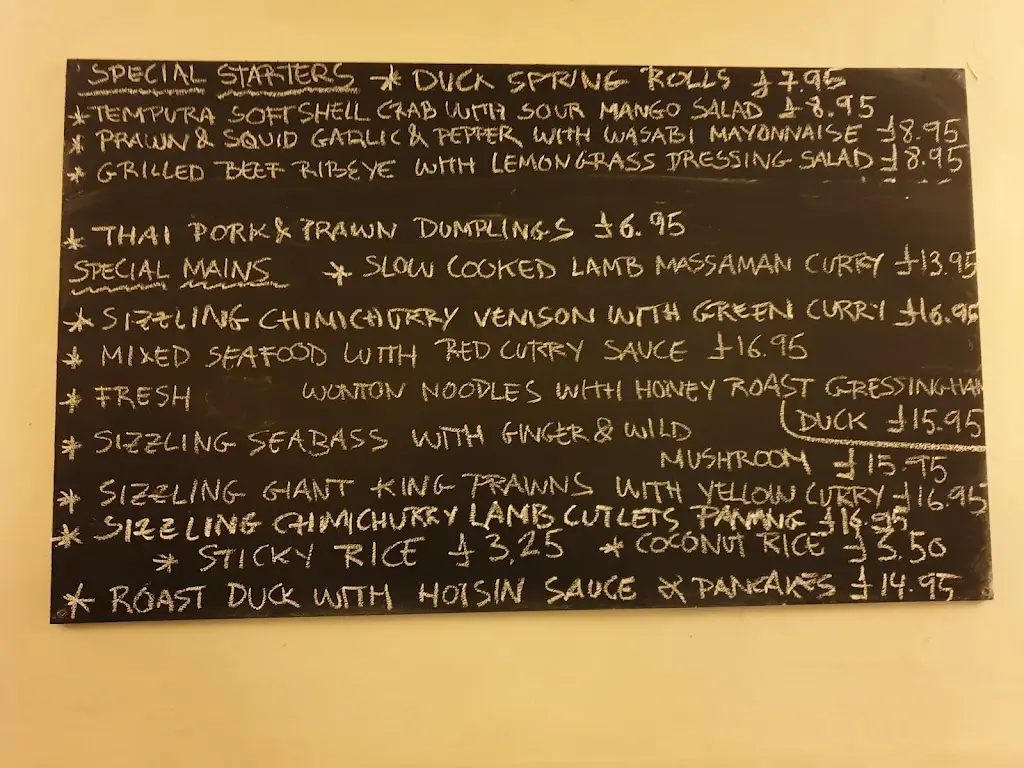 SPECIAL STARTERS * DUCK SPRING ROLLS £7.95
* TEMPURA SOFTSHELL CRAB WITH SOUR MANGO SALAD £8.95
* PRAWN & SQUID GARLIC & PEPPER WITH WASABI MAYONNAISE £8.95
* GRILLED BEEF RIBEYE WITH LEMONGRASS DRESSING SALAD £8.95
* THAI PORK & PRAWN DUMPLINGS £6.95
SPECIAL MAINS * SLOW COOKED LAMB MASSAMAN CURRY £13.95
* SIZZLING CHIMICHURRY VENISON WITH GREEN CURRY £16.95
* MIXED SEAFOOD WITH RED CURRY SAUCE £16.95
* FRESH WONTON NOODLES WITH HONEY ROAST GRESSINGHAM
DUCK £15.95
* SIZZLING SEABASS WITH GINGER & WILD
MUSHROOM £15.95
* SIZZLING GIANT KING PRAWNS WITH YELLOW CURRY £16.95
* SIZZLING CHIMICHURRY LAMB CUTLETS PANANG £16.95
* STICKY RICE £3.25 * COCONUT RICE £3.50
* ROAST DUCK WITH HOISIN SAUCE & PANCAKES £14.95